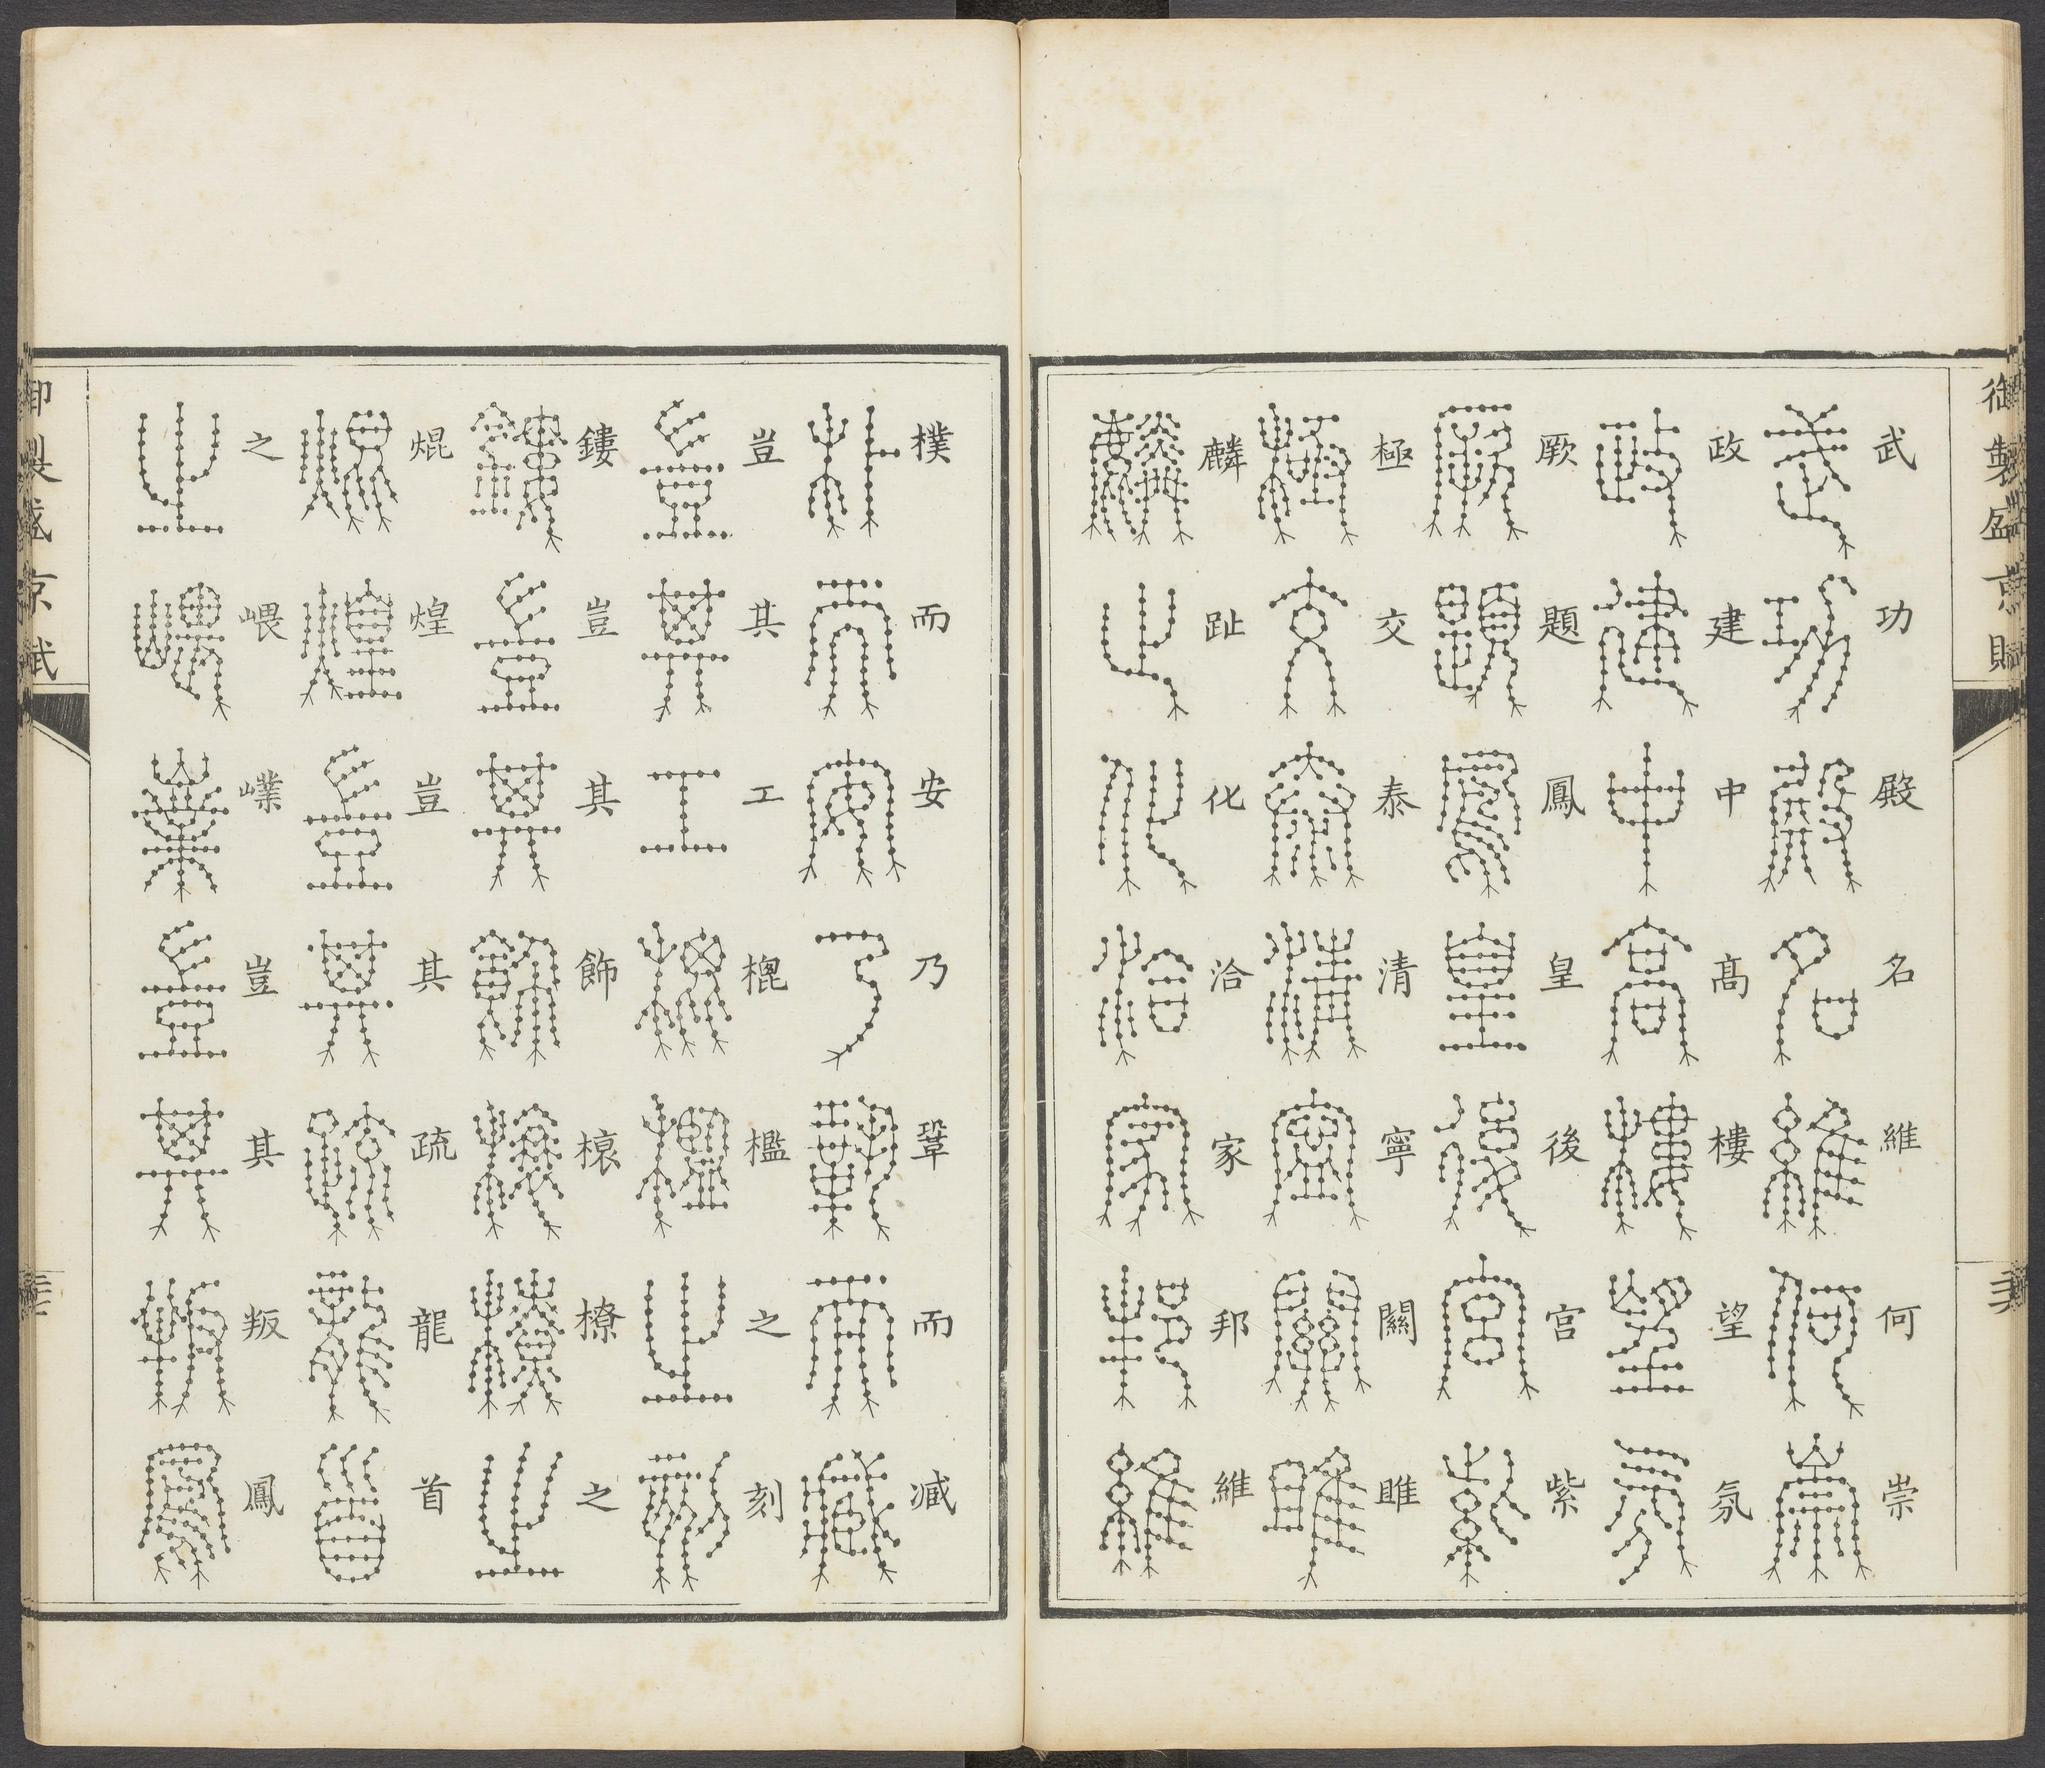 御製盛京賦
武功殿名維何崇
政建中高樓望氛
厥題鳳皇後宮紫
極交泰清寧關雎
麟趾化洽家邦維
樸而安乃鞏而減
豈其工榥檻之刻
鏤豈其飾榱橑之
焜煌豈其疏龍首
之㟪嶫豈其叛鳳
御製盛京賦